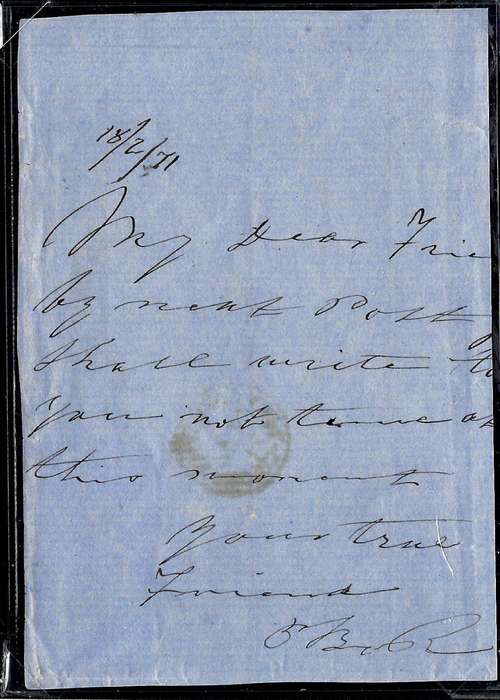 18/2/71
My Dear Frie
by next Post
shall write to
you not time at
this moment
your true
Friend